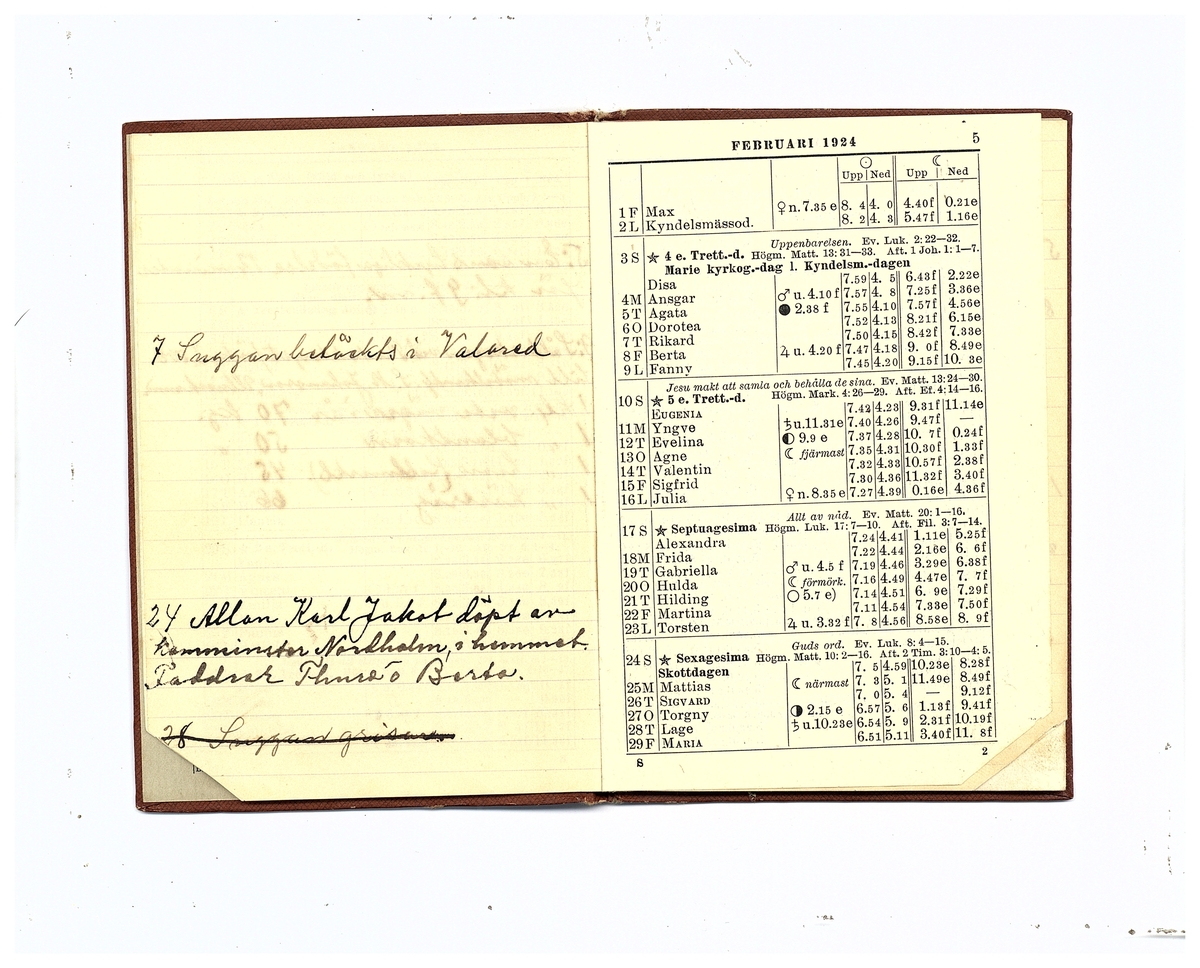 7 Suggan betäckts i Valared
24 Allan Karl Jakob döpt av
komminister Nordholm, i hemmet.
Faddrar Thure o Berta.
28 Suggan grisar.
FEBRUARI 1924 5
☉ ☾
Upp Ned Upp Ned
1 F Max ♀ n. 7.35 e 8. 4 4. 0 4.40f 0.21e
2 L Kyndelsmässod. 8. 2 4. 3 5.47f 1.16e
Uppenbarelsen. Ev. Luk. 2: 22—32.
3 S ★ 4 e. Trett.-d. Högm. Matt. 13: 31—33. Aft. 1 Joh. 1: 1—7.
Marie kyrkog.-dag l. Kyndelsm.-dagen
Disa 7.59 4. 5 6.43f 2.22e
4 M Ansgar ♂ u. 4.10 f 7.57 4. 8 7.25f 3.36e
5 T Agata ● 2.38 f 7.55 4.10 7.57f 4.56e
6 O Dorotea 7.52 4.13 8.21f 6.15e
7 T Rikard 7.50 4.15 8.42f 7.33e
8 F Berta ♃ u. 4.20 f 7.47 4.18 9. 0f 8.49e
9 L Fanny 7.45 4.20 9.15f 10. 3e
Jesu makt att samla och behålla de sina. Ev. Matt. 13: 24—30.
10 S ★ 5 e. Trett.-d. Högm. Mark. 4: 26—29. Aft. Ef. 4: 14—16.
EUGENIA 7.42 4.23 9.31f 11.14e
11 M Yngve ♄ u. 11.31e 7.40 4.26 9.47f —
12 T Evelina ◐ 9.9 e 7.37 4.28 10. 7f 0.24f
13 O Agne ☾ fjärmast 7.35 4.31 10.30f 1.33f
14 T Valentin 7.32 4.33 10.57f 2.38f
15 F Sigfrid 7.30 4.36 11.32f 3.40f
16 L Julia ♀ n. 8.35 e 7.27 4.39 0.16e 4.36f
Allt av nåd. Ev. Matt. 20: 1—16.
17 S ★ Septuagesima Högm. Luk. 17: 7—10. Aft. Fil. 3: 7—14.
Alexandra 7.24 4.41 1.11e 5.25f
18 M Frida 7.22 4.44 2.16e 6. 6f
19 T Gabriella ♂ u. 4.5 f 7.19 4.46 3.29e 6.38f
20 O Hulda ☾ förmörk. 7.16 4.49 4.47e 7. 7f
21 T Hilding ○ 5.7 e) 7.14 4.51 6. 9e 7.29f
22 F Martina 7.11 4.54 7.33e 7.50f
23 L Torsten ♃ u. 3.32 f 7. 8 4.56 8.58e 8. 9f
Guds ord. Ev. Luk. 8: 4—15.
24 S ★ Sexagesima Högm. Matt. 10: 2—16. Aft. 2 Tim. 3: 10—4: 5.
Skottdagen 7. 5 4.59 10.23e 8.28f
25 M Mattias ☾ närmast 7. 3 5. 1 11.49e 8.49f
26 T SIGVARD 7. 0 5. 4 — 9.12f
27 O Torgny ◑ 2.15 e 6.57 5. 6 1.13f 9.41f
28 T Lage ♄ u. 10.23e 6.54 5. 9 2.31f 10.19f
29 F MARIA 6.51 5.11 3.40f 11. 8f
S 2